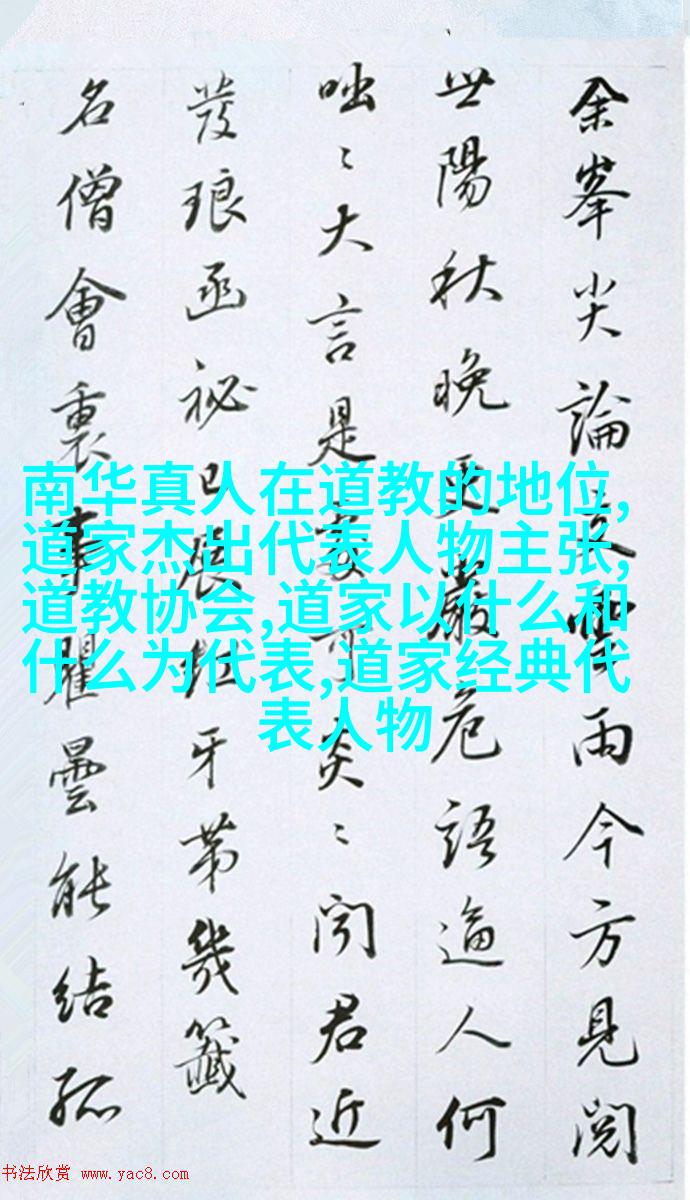 余峯尖論雨今方見閱
世陽秋晚更嚴危語逼人何
咄〻大言是可炎〻聞君近
發琅函祕已展牙第幾籤
名僧會裏事瞿曇能結孤
南华真人在道教的地位,
道家杰出代表人物主张,
道教协会,道家以什么和
什么为代表,道家经典代
表人物
书法欣赏 www.yac8.com